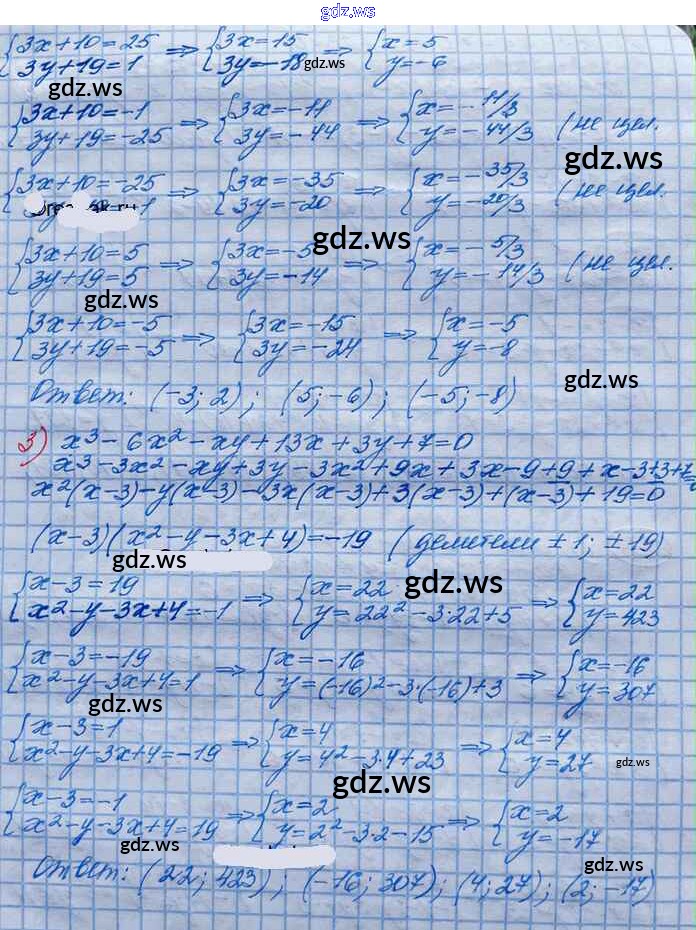 gdz.ws
{3x+10=25 3y+19=1 => {3x=15 3y=-18 gdz.ws => {x=5 y=-6
gdz.ws
{3x+10=-1 3y+19=-25 => {3x=-11 3y=-44 => {x=-11/3 y=-44/3 (не цел.
gdz.ws
{3x+10=-25 => {3x=-35 3y=-20 => {x=-35/3 y=-20/3 (не цел.
gdz.ws
{3x+10=5 3y+19=5 => {3x=-5 3y=-14 => {x=-5/3 y=-14/3 (не цел.
gdz.ws
{3x+10=-5 3y+19=-5 => {3x=-15 3y=-24 => {x=-5 y=-8
gdz.ws
Ответ: (-3; 2); (5; -6); (-5; -8)
3) x³-6x²-xy+13x+3y+7=0
x³-3x²-xy+3y-3x²+9x+3x-9+9+x-3+3+7=0
x²(x-3)-y(x-3)-3x(x-3)+3(x-3)+(x-3)+19=0
(x-3)(x²-y-3x+4)=-19 (делители ±1; ±19)
gdz.ws
gdz.ws
{x-3=19 x²-y-3x+4=-1 => {x=22 y=22²-3·22+5 => {x=22 y=423
{x-3=-19 x²-y-3x+4=1 => {x=-16 y=(-16)²-3·(-16)+3 => {x=-16 y=307
gdz.ws
{x-3=1 x²-y-3x+4=-19 => {x=4 y=4²-3·4+23 => {x=4 y=27 gdz.ws
gdz.ws
{x-3=-1 x²-y-3x+4=19 => {x=2 y=2²-3·2-15 => {x=2 y=-17
gdz.ws
gdz.ws
Ответ: (22; 423); (-16; 307); (4; 27); (2; -17)